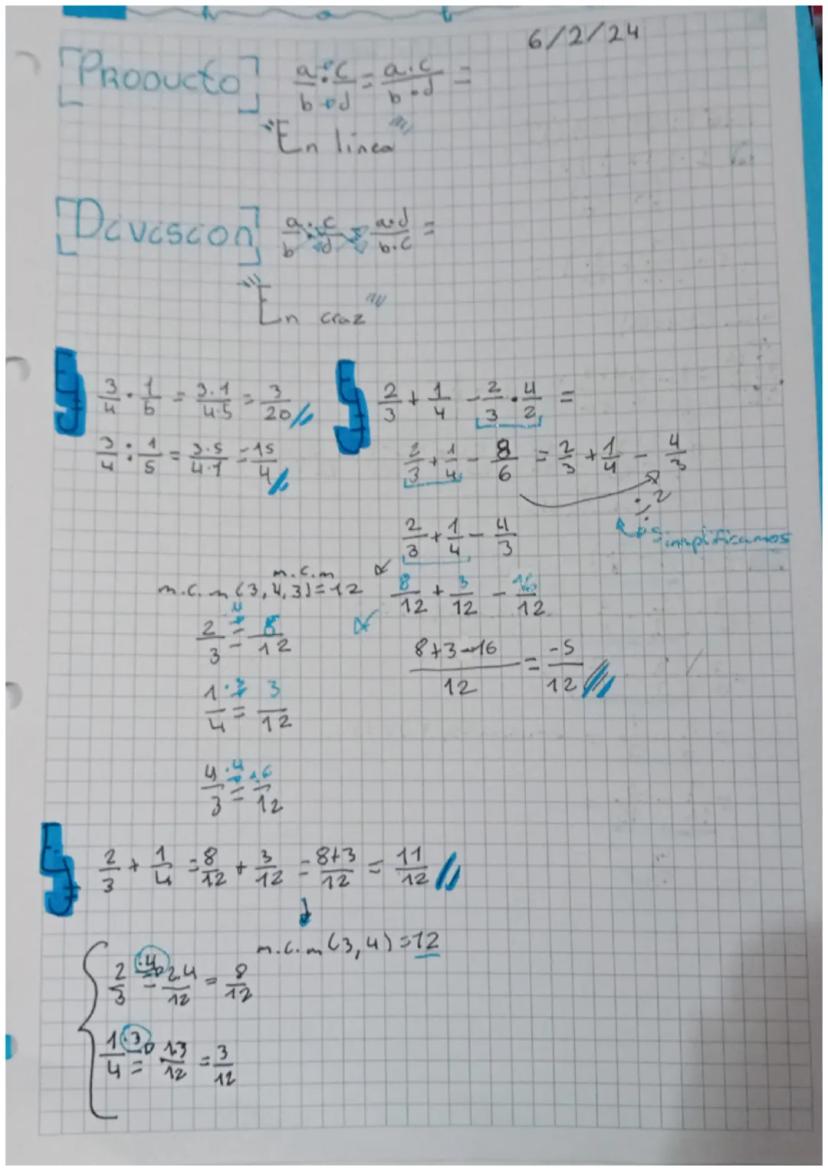 6/2/24
[Producto] a/b · c/d = a·c/b·d =
"En linea"
[Diviscon] a/b : c/d a·d/b·c =
"En craz"
Ej 3/4 · 1/5 = 3·1/4·5 = 3/20
3/4 : 1/5 = 3·5/4·1 = 15/4
Ej 2/3 + 1/4 - 2/3 · 4/2 =
2/3 + 1/4 - 8/6 = 2/3 + 1/4 - 4/3
:2
Simplificamos
2/3 + 1/4 - 4/3
m.c.m
m.c.m (3,4,3)=12
8/12 + 3/12 - 16/12
8+3-16/12 = -5/12
2/3 ·4 = 8/12
1/4 ·3 = 3/12
4/3 ·4 = 16/12
Ej 2/3 + 1/4 = 8/12 + 3/12 = 8+3/12 = 11/12
m.c.m (3,4)=12
2/3 ·4 = 2·4/12 = 8/12
1/4 ·3 = 1·3/12 = 3/12